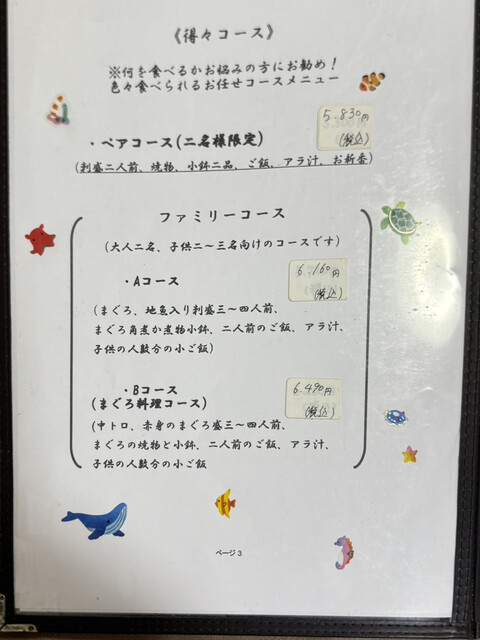 《得々コース》
※何を食べるかお悩みの方にお勧め！
色々食べられるお任せコースメニュー
5.830円
・ペアコース(二名様限定)
(税込)
(刺盛二人前、焼物、小鉢二品、ご飯、アラ汁、お新香)
ファミリーコース
(大人二名、子供二～三名向けのコースです)
・Aコース
6.160円
(税込)
(まぐろ、地魚入り刺盛三～四人前、
まぐろ角煮か煮物小鉢、二人前のご飯、アラ汁、
子供の人数分の小ご飯)
・Bコース
6.490円
(まぐろ料理コース)
(税込)
(中トロ、赤身のまぐろ盛三～四人前、
まぐろの焼物と小鉢、二人前のご飯、アラ汁、
子供の人数分の小ご飯
ページ3